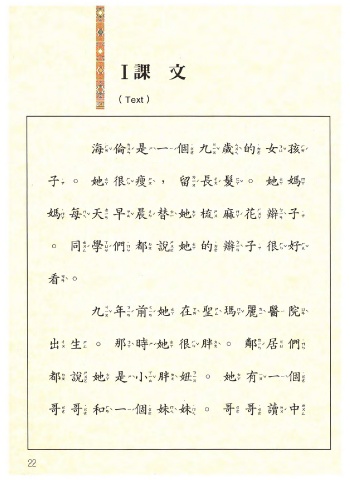 I 課 文
（Text）
海倫是一個九歲的女孩
子。她很瘦，留長髮。她媽
媽每天早晨替她梳麻花辮子
。同學們都說她的辮子很好
看。
九年前她在聖瑪麗醫院
出生。那時她很胖。鄰居們
都說她是小胖妞。她有一個
哥哥和一個妹妹。哥哥讀中
22